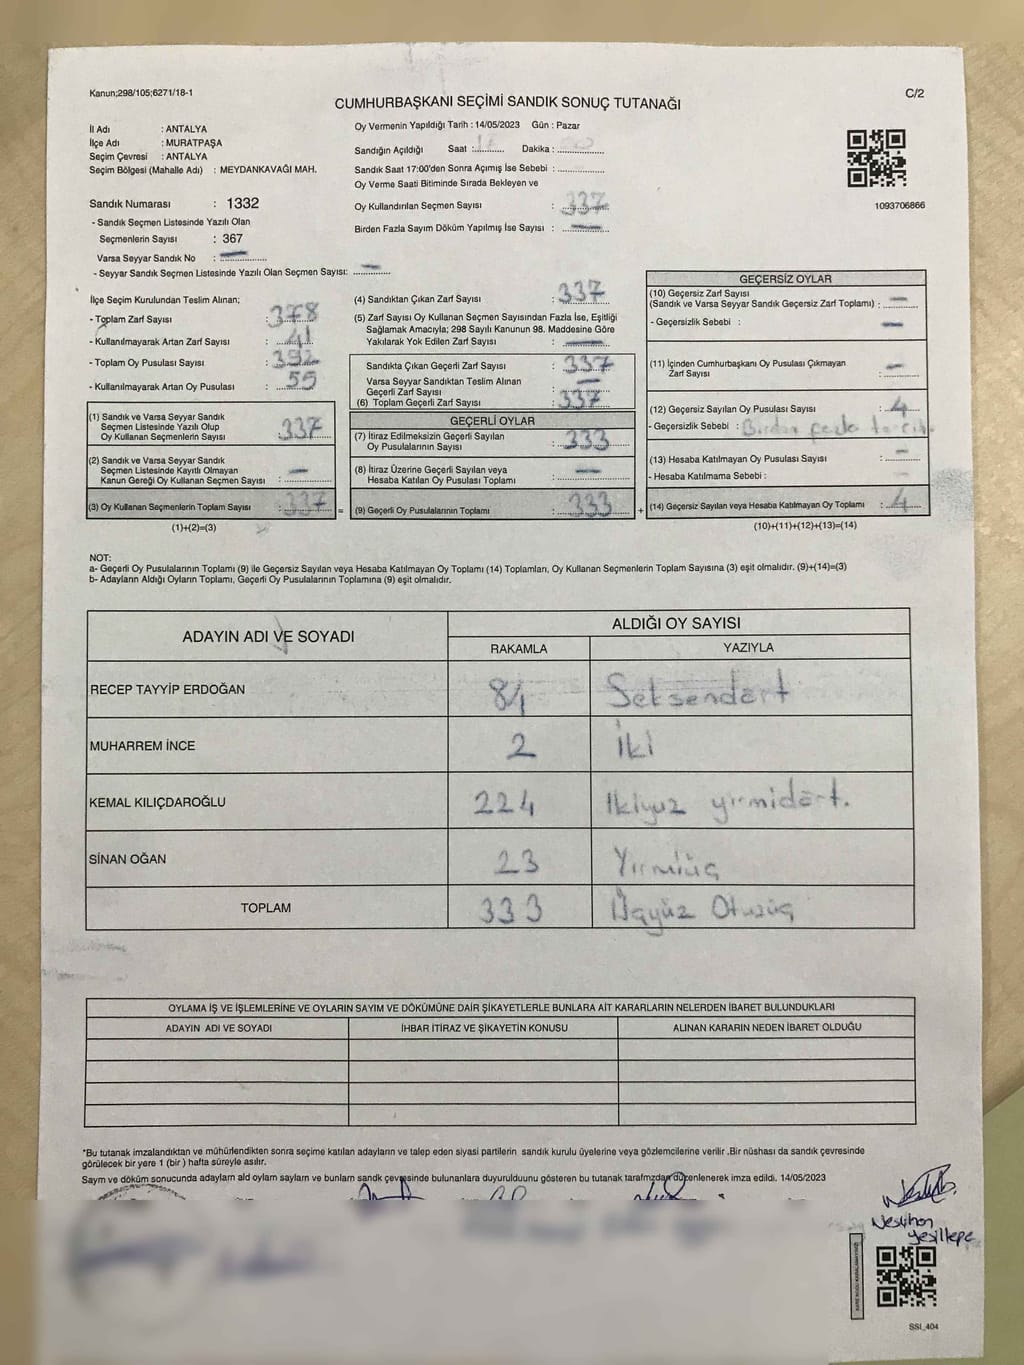 Kanun;298/105;6271/18-1
C/2
CUMHURBAŞKANI SEÇİMİ SANDIK SONUÇ TUTANAĞI
İl Adı : ANTALYA
İlçe Adı : MURATPAŞA
Seçim Çevresi : ANTALYA
Seçim Bölgesi (Mahalle Adı) : MEYDANKAVAĞI MAH.
Sandık Numarası : 1332
- Sandık Seçmen Listesinde Yazılı Olan
Seçmenlerin Sayısı : 367
Varsa Seyyar Sandık No : —
- Seyyar Sandık Seçmen Listesinde Yazılı Olan Seçmen Sayısı: —
Oy Vermenin Yapıldığı Tarih : 14/05/2023 Gün : Pazar
Sandığın Açıldığı Saat : Dakika :
Sandık Saat 17:00'den Sonra Açımış İse Sebebi :
Oy Verme Saati Bitiminde Sırada Bekleyen ve
Oy Kullandırılan Seçmen Sayısı : 337
Birden Fazla Sayım Döküm Yapılmış İse Sayısı : —
1093706866
İlçe Seçim Kurulundan Teslim Alınan;
- Toplam Zarf Sayısı : 378
- Kullanılmayarak Artan Zarf Sayısı : 41
- Toplam Oy Pusulası Sayısı : 392
- Kullanılmayarak Artan Oy Pusulası : 55
(1) Sandık ve Varsa Seyyar Sandık
Seçmen Listesinde Yazılı Olup
Oy Kullanan Seçmenlerin Sayısı : 337
(2) Sandık ve Varsa Seyyar Sandık
Seçmen Listesinde Kayıtlı Olmayan
Kanun Gereği Oy Kullanan Seçmen Sayısı : —
(3) Oy Kullanan Seçmenlerin Toplam Sayısı : 337
(1)+(2)=(3)
(4) Sandıktan Çıkan Zarf Sayısı : 337
(5) Zarf Sayısı Oy Kullanan Seçmen Sayısından Fazla İse, Eşitliği
Sağlamak Amacıyla; 298 Sayılı Kanunun 98. Maddesine Göre
Yakılarak Yok Edilen Zarf Sayısı : —
Sandıkta Çıkan Geçerli Zarf Sayısı : 337
Varsa Seyyar Sandıktan Teslim Alınan
Geçerli Zarf Sayısı : —
(6) Toplam Geçerli Zarf Sayısı : 337
GEÇERLİ OYLAR
(7) İtiraz Edilmeksizin Geçerli Sayılan
Oy Pusulasının Sayısı : 333
(8) İtiraz Üzerine Geçerli Sayılan veya
Hesaba Katılan Oy Pusulası Toplamı : —
= (9) Geçerli Oy Pusulalarının Toplamı : 333
GEÇERSİZ OYLAR
(10) Geçersiz Zarf Sayısı
(Sandık ve Varsa Seyyar Sandık Geçersiz Zarf Toplamı) : —
- Geçersizlik Sebebi : —
(11) İçinden Cumhurbaşkanı Oy Pusulası Çıkmayan
Zarf Sayısı : —
(12) Geçersiz Sayılan Oy Pusulası Sayısı : 4
- Geçersizlik Sebebi : Birden fazla tercih
(13) Hesaba Katılmayan Oy Pusulası Sayısı : —
- Hesaba Katılmama Sebebi : —
+ (14) Geçersiz Sayılan veya Hesaba Katılmayan Oy Toplamı : 4
(10)+(11)+(12)+(13)=(14)
NOT:
a- Geçerli Oy Pusulalarının Toplamı (9) ile Geçersiz Sayılan veya Hesaba Katılmayan Oy Toplamı (14) Toplamları, Oy Kullanan Seçmenlerin Toplam Sayısına (3) eşit olmalıdır. (9)+(14)=(3)
b- Adayların Aldığı Oyların Toplamı, Geçerli Oy Pusulalarının Toplamına (9) eşit olmalıdır.
ADAYIN ADI VE SOYADI ALDIĞI OY SAYISI
RAKAMLA YAZIYLA
RECEP TAYYİP ERDOĞAN 84 Seksendört
MUHARREM İNCE 2 İki
KEMAL KILIÇDAROĞLU 224 İkiyüz yirmidört.
SİNAN OĞAN 23 Yirmiüç
TOPLAM 333 Üçyüz Otuzüç
OYLAMA İŞ VE İŞLEMLERİNE VE OYLARIN SAYIM VE DÖKÜMÜNE DAİR ŞİKAYETLERLE BUNLARA AİT KARARLARIN NELERDEN İBARET BULUNDUKLARI
ADAYIN ADI VE SOYADI İHBAR İTİRAZ VE ŞİKAYETİN KONUSU ALINAN KARARIN NEDEN İBARET OLDUĞU
*Bu tutanak imzalandıktan ve mühürlendikten sonra seçime katılan adayların ve talep eden siyasi partilerin sandık kurulu üyelerine veya gözlemcilerine verilir .Bir nüshası da sandık çevresinde
görülecek bir yere 1 (bir ) hafta süreyle asılır.
Sayım ve döküm sonucunda adayların aldı oyların sayıları ve bunların sandık çevresinde bulunanlara duyurulduunu gösteren bu tutanak tarafımızdan düzenlenerek imza edildi. 14/05/2023
Neslihan
Yesiltepe
SSI_404